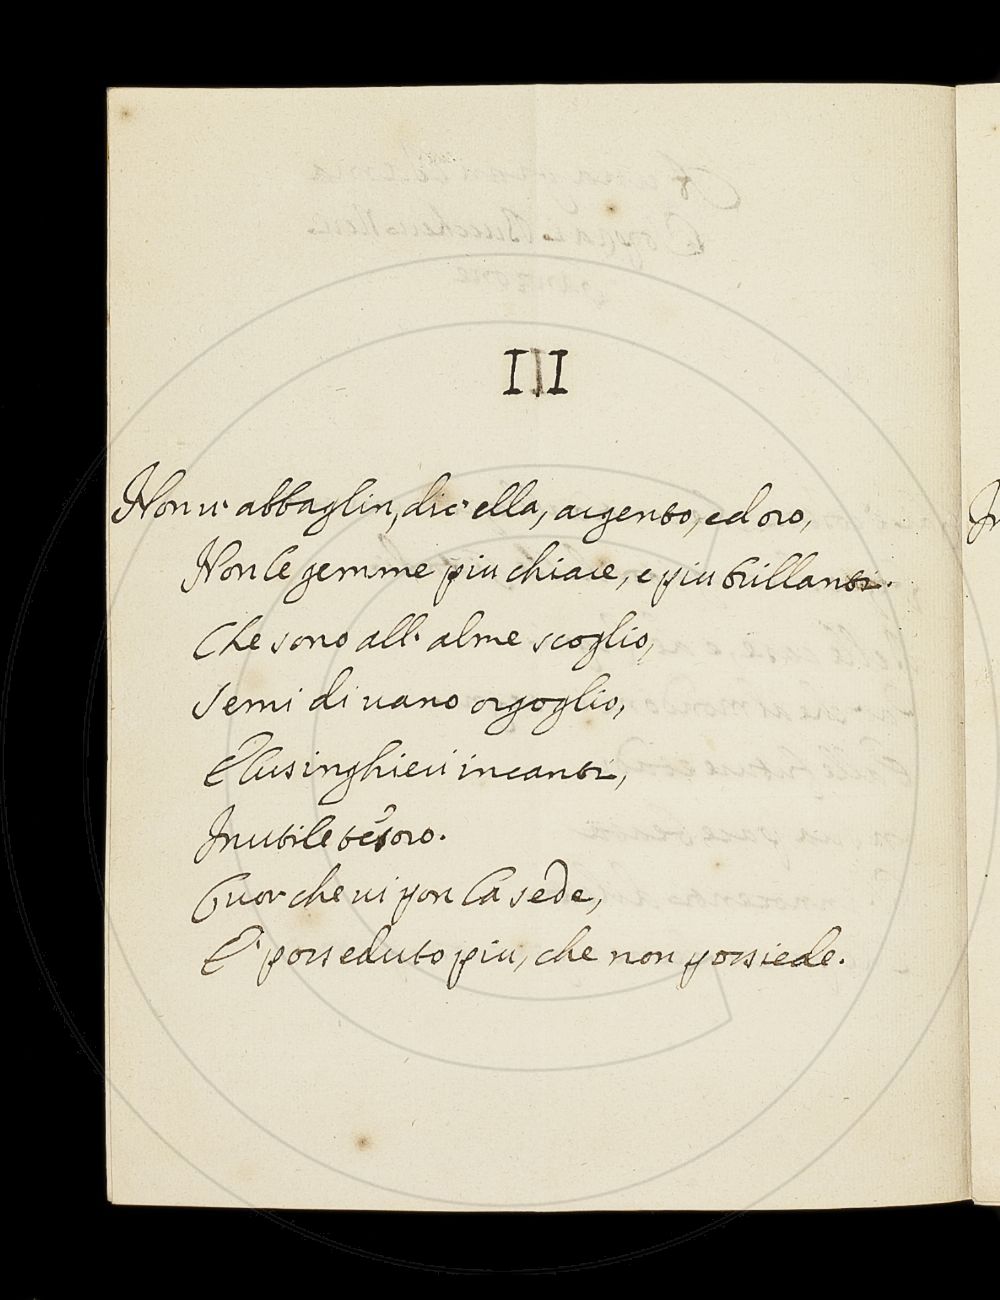 III
Non v' abbaglin, dic' ella, argento, ed oro,
Non le gemme piu chiare, e piu brillanti.
Che sono all' alme scoglio,
Semi di vano orgoglio,
E lusinghieri incanti,
Inutile tesoro.
Cuor che vi pon la sede,
E' posseduto piu, che non possiede.